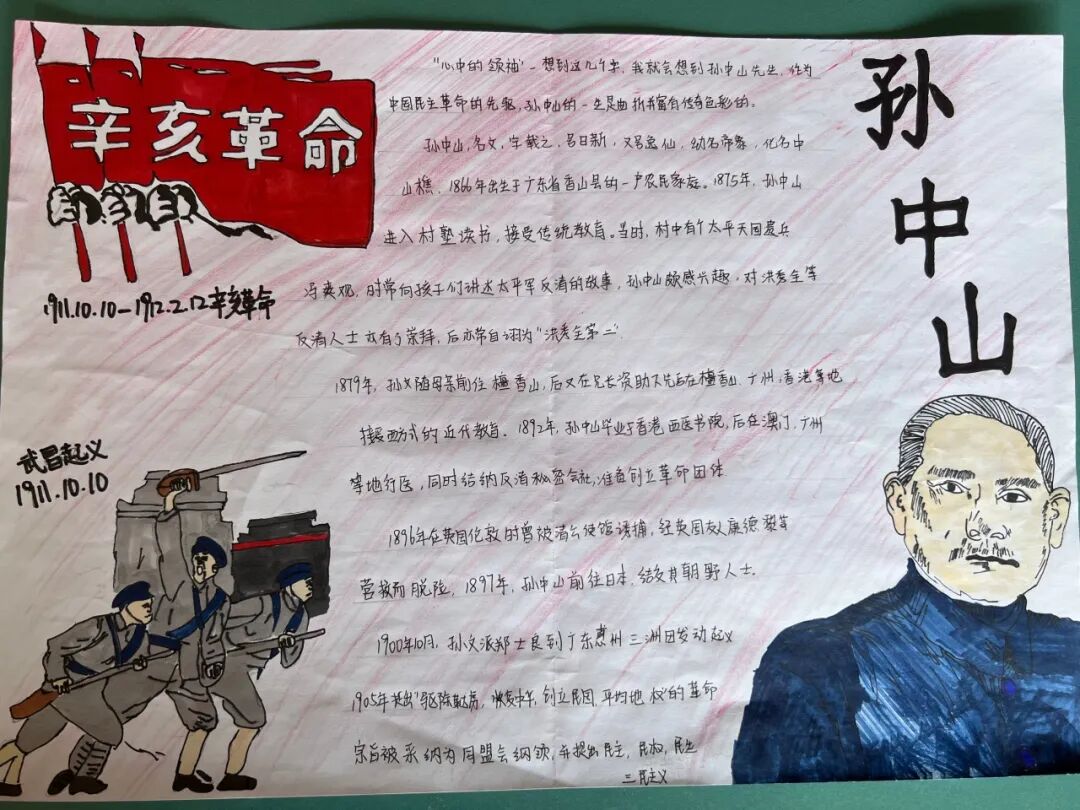 辛亥革命
1911.10.10-1912.2.12辛亥革命
武昌起义
1911.10.10
孙中山
"心中的领袖"一想到这几个字,我就会想到孙中山先生,作为
中国民主革命的先驱,孙中山的一生是曲折并富有传奇色彩的。
孙中山,名文,字载之,号日新,又号逸仙,幼名帝象,化名中
山樵,1866年出生于广东省香山县的一户农民家庭。1875年,孙中山
进入村塾读书,接受传统教育。当时,村中有个太平天国老兵
冯爽观,时常向孩子们讲述太平军反清的故事,孙中山颇感兴趣,对洪秀全等
反清人士亦有了崇拜,后亦常自诩为"洪秀全第二"
1879年,孙文随母亲前往檀香山,后又在兄长资助下先后在檀香山、广州,香港等地
接受西方式的近代教育。1892年,孙中山毕业于香港西医书院,后在澳门、广州
等地行医,同时结纳反清秘密会社,准备创立革命团体
1896年在英国伦敦时曾被清公使馆诱捕,经英国友人康德黎等
营救而脱险,1897年,孙中山前往日本,结交其朝野人士。
1900年10月,孙文派郑士良到广东惠州三洲田发动起义
1905年提出"驱除鞑虏,恢复中华,创立民国,平均地权的革命
宗旨被采纳为同盟会纲领,并提出民主,民权,民生
三民主义